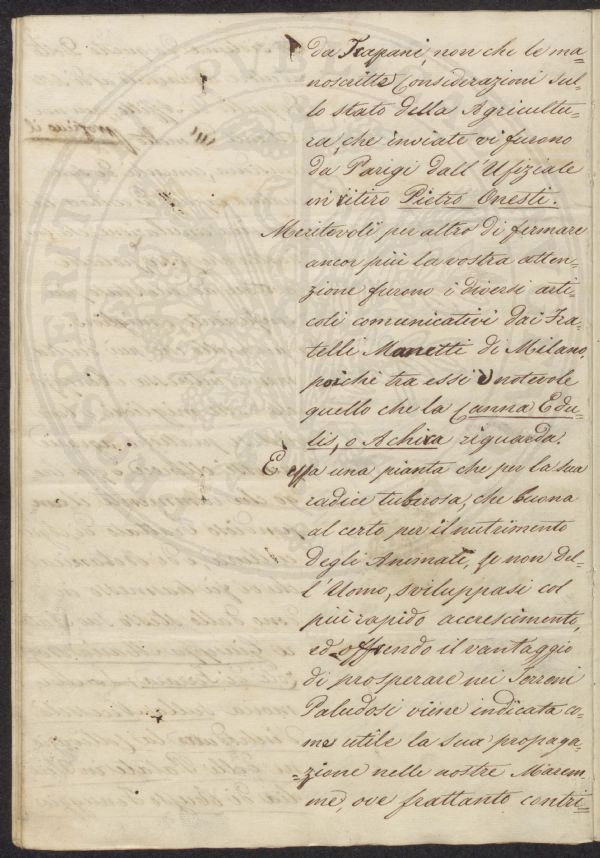 da Trapani, non che le ma=
noscritte Considerazioni sul=
lo stato della Agricultu=
ra, che inviate vi furono
da Parigi dall'Ufiziale
in ritiro Pietro Onesti.
Meritevoli per altro di fermare
ancor più la vostra atten=
zione furono i diversi arti=
coli comunicativi dai Fra=
telli Manetti di Milano,
poichè tra essi è notevole
quello che la Canna Edu=
lis, o Achira riguarda.
È essa una pianta che per la sua
radice tuberosa, che buona
al certo per il nutrimento
degli Animali, se non del=
l'Uomo, sviluppasi col
più rapido accrescimento,
ed offrendo il vantaggio
di prosperare nei Terreni
Paludosi viene indicata co=
me utile la sua propaga=
=zione nelle nostre Marem=
me, ove frattanto contri=